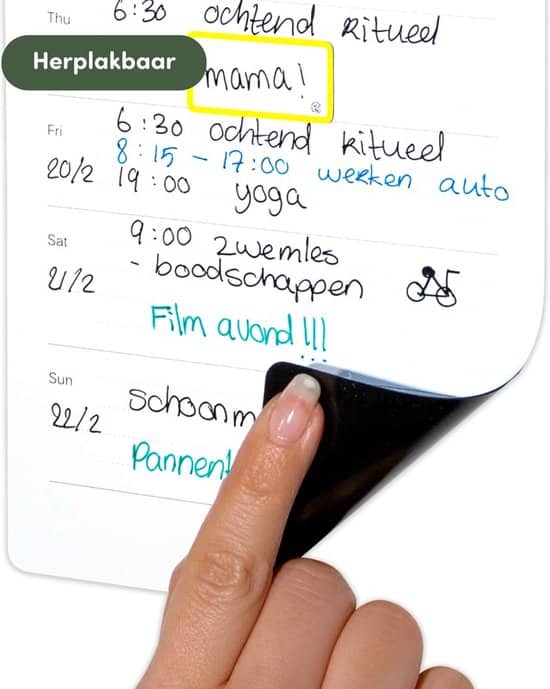 Thu 6:30 ochtend Ritueel
Herplakbaar
mama!
Fri 6:30 ochtend Ritueel
8:15 - 17:00 werken auto
20/2 19:00 yoga
Sat 9:00 zwemles
21/2 - boodschappen
Film avond!!!
Sun schoonm
22/2
Pannen